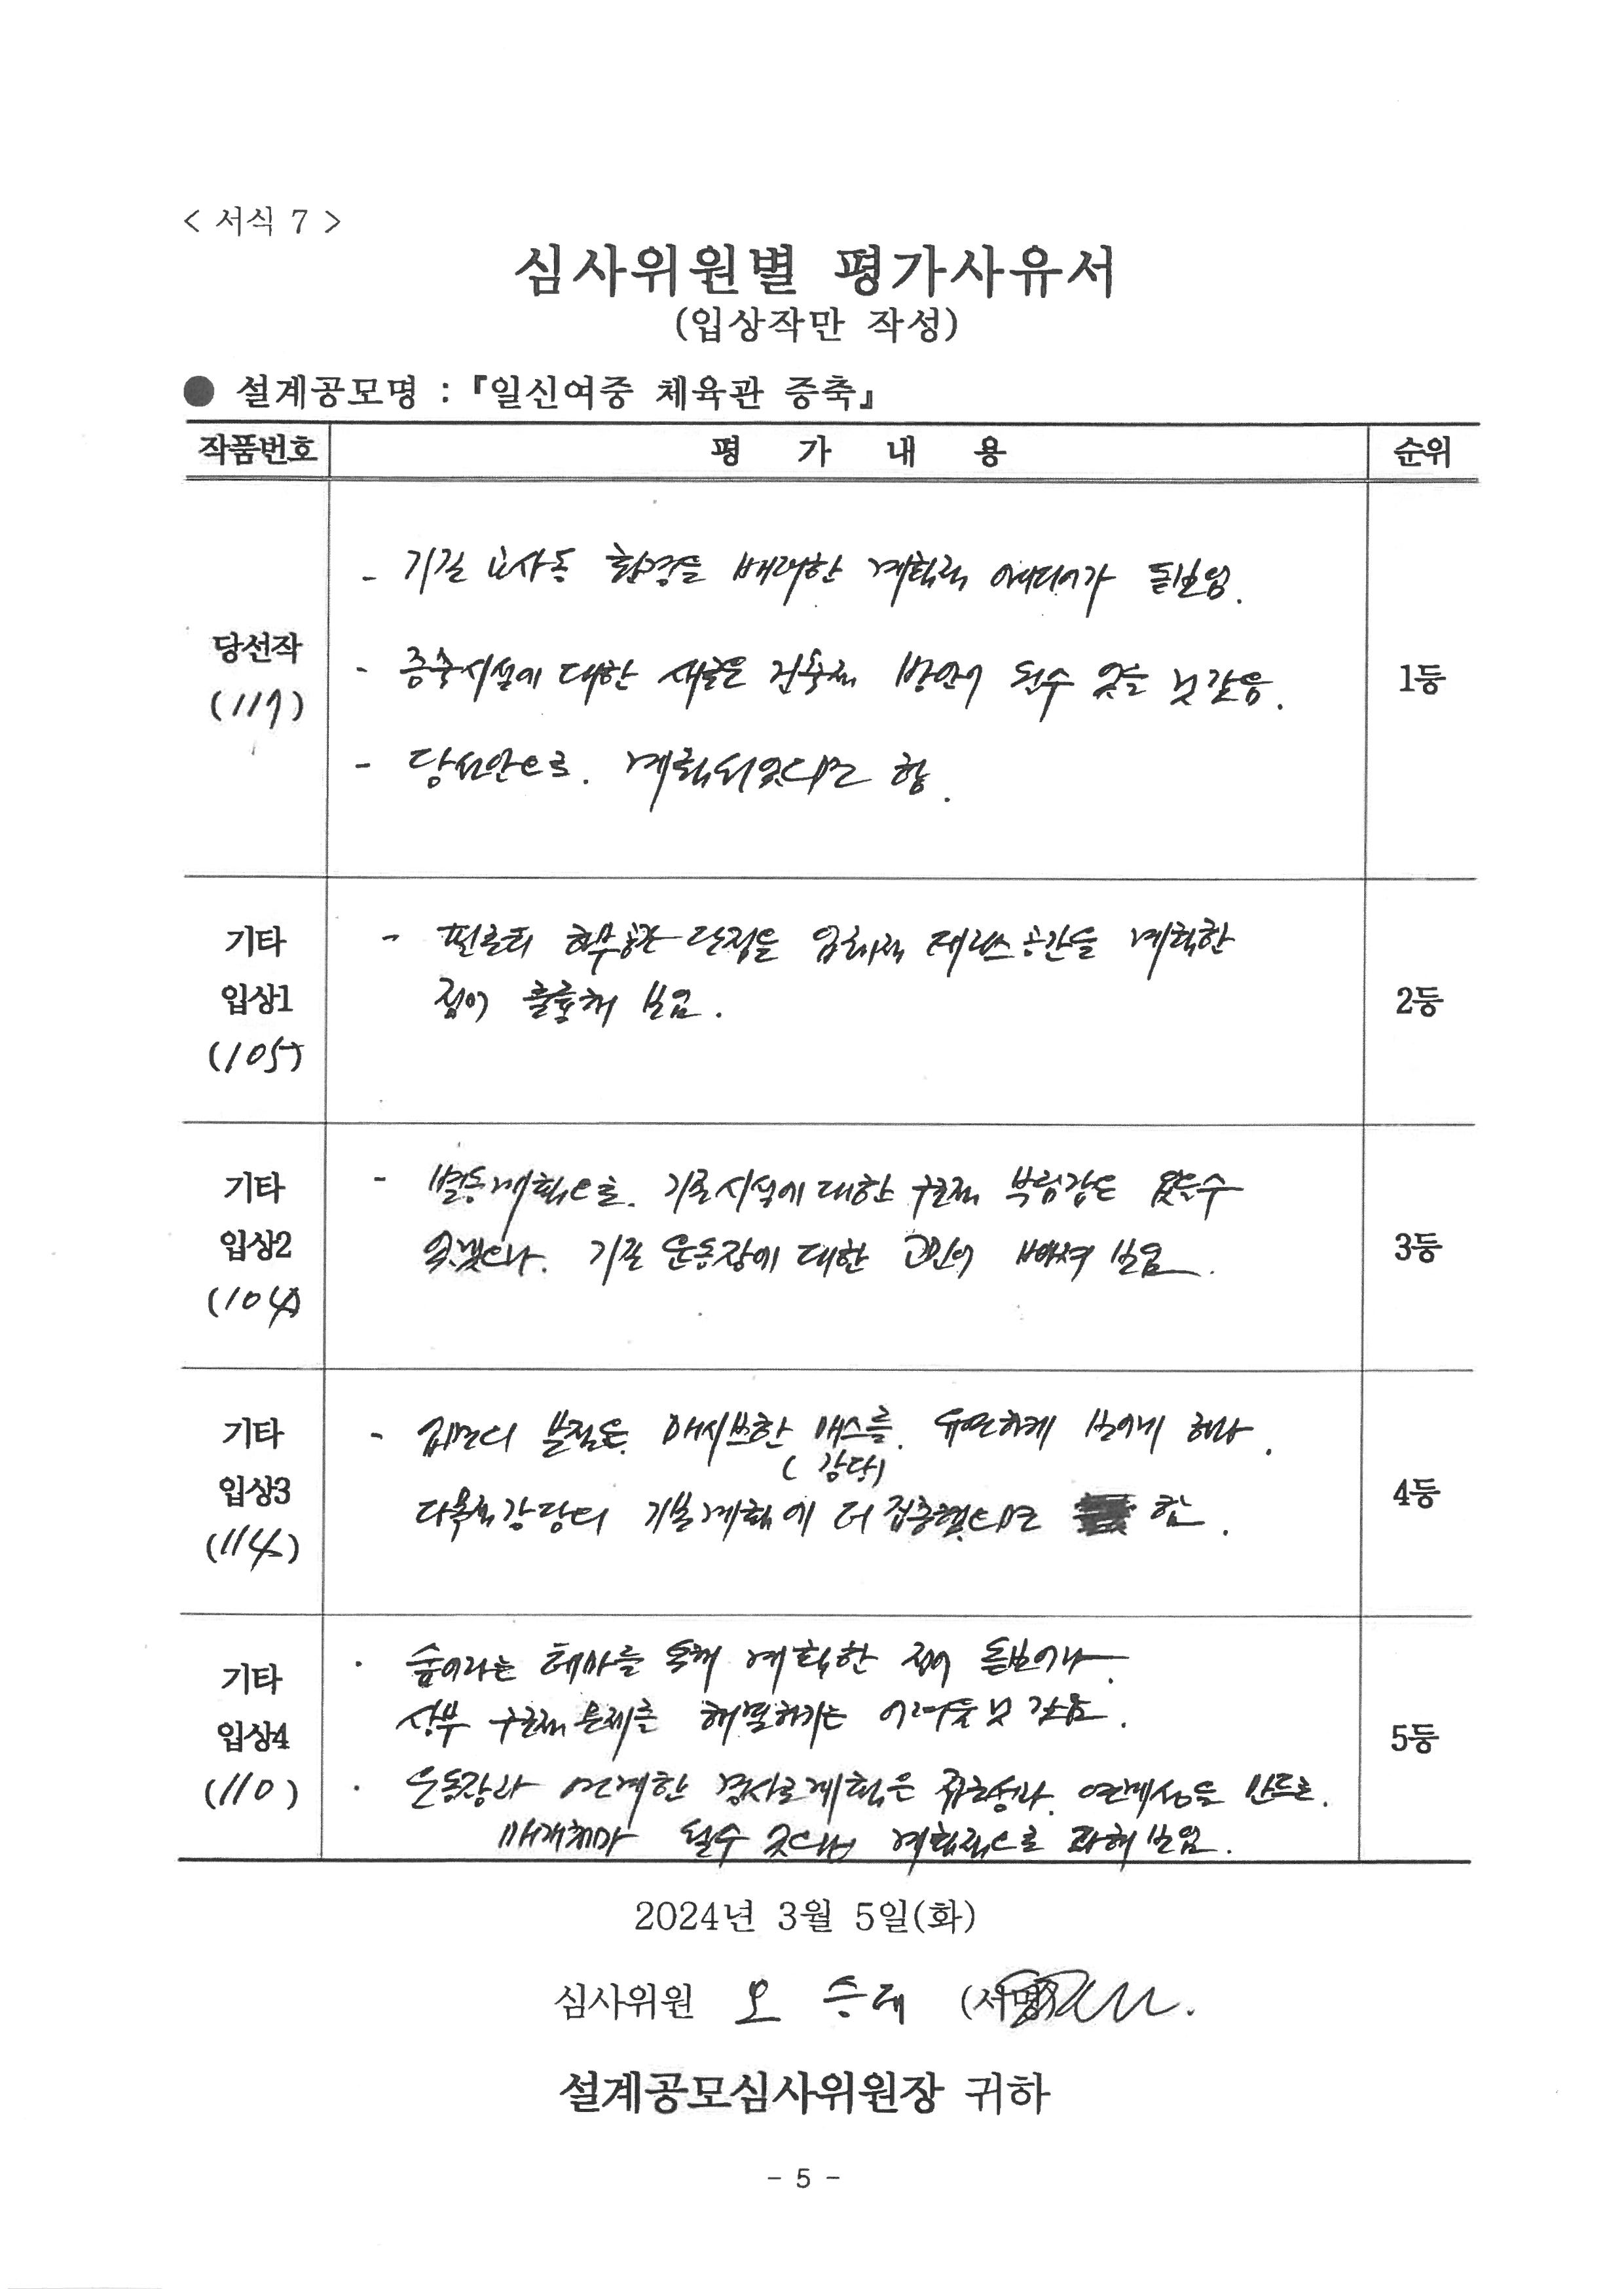 < 서식 7 >
심사위원별 평가사유서
(입상작만 작성)
● 설계공모명 : 『일신여중 체육관 증축』
작품번호 평 가 내 용 순위
- 기존 교사동 환경을 배려한 계획적 아이디어가 돋보임.
당선작
(119)
- 증축시설에 대한 새로운 건축적 방안이 될수 있을 것 같음.
1등
- 당선안으로. 계획되었으면 함.
기타
입상1
(105)
- 필로티 하부공간 단점을 입체적 테라스공간을 계획한
점이 훌륭해 보임.
2등
기타
입상2
(104)
- 별동계획으로. 기존시설에 대한 구조적 부담감은 없을수
있겠으나. 기존 운동장에 대한 고민이 빠져 보임.
3등
기타
입상3
(114)
- 입면의 분절은 매시브한 매스를. 유연하게 보이게 하나.
(강당)
다목적강당의 기본계획에 더 집중했으면 함.
4등
기타
입상4
(110)
· 숲이라는 테마를 통해 계획한 점이 돋보이나.
상부 구조적 문제를 해결하기는 어려울 것 같음.
· 운동장과 연계한 경사로계획은 연계성을 만드는.
매개체가 될수 있으나 계획적으로 과해 보임.
5등
2024년 3월 5일(화)
심사위원 오 승태 (서명)
설계공모심사위원장 귀하
- 5 -